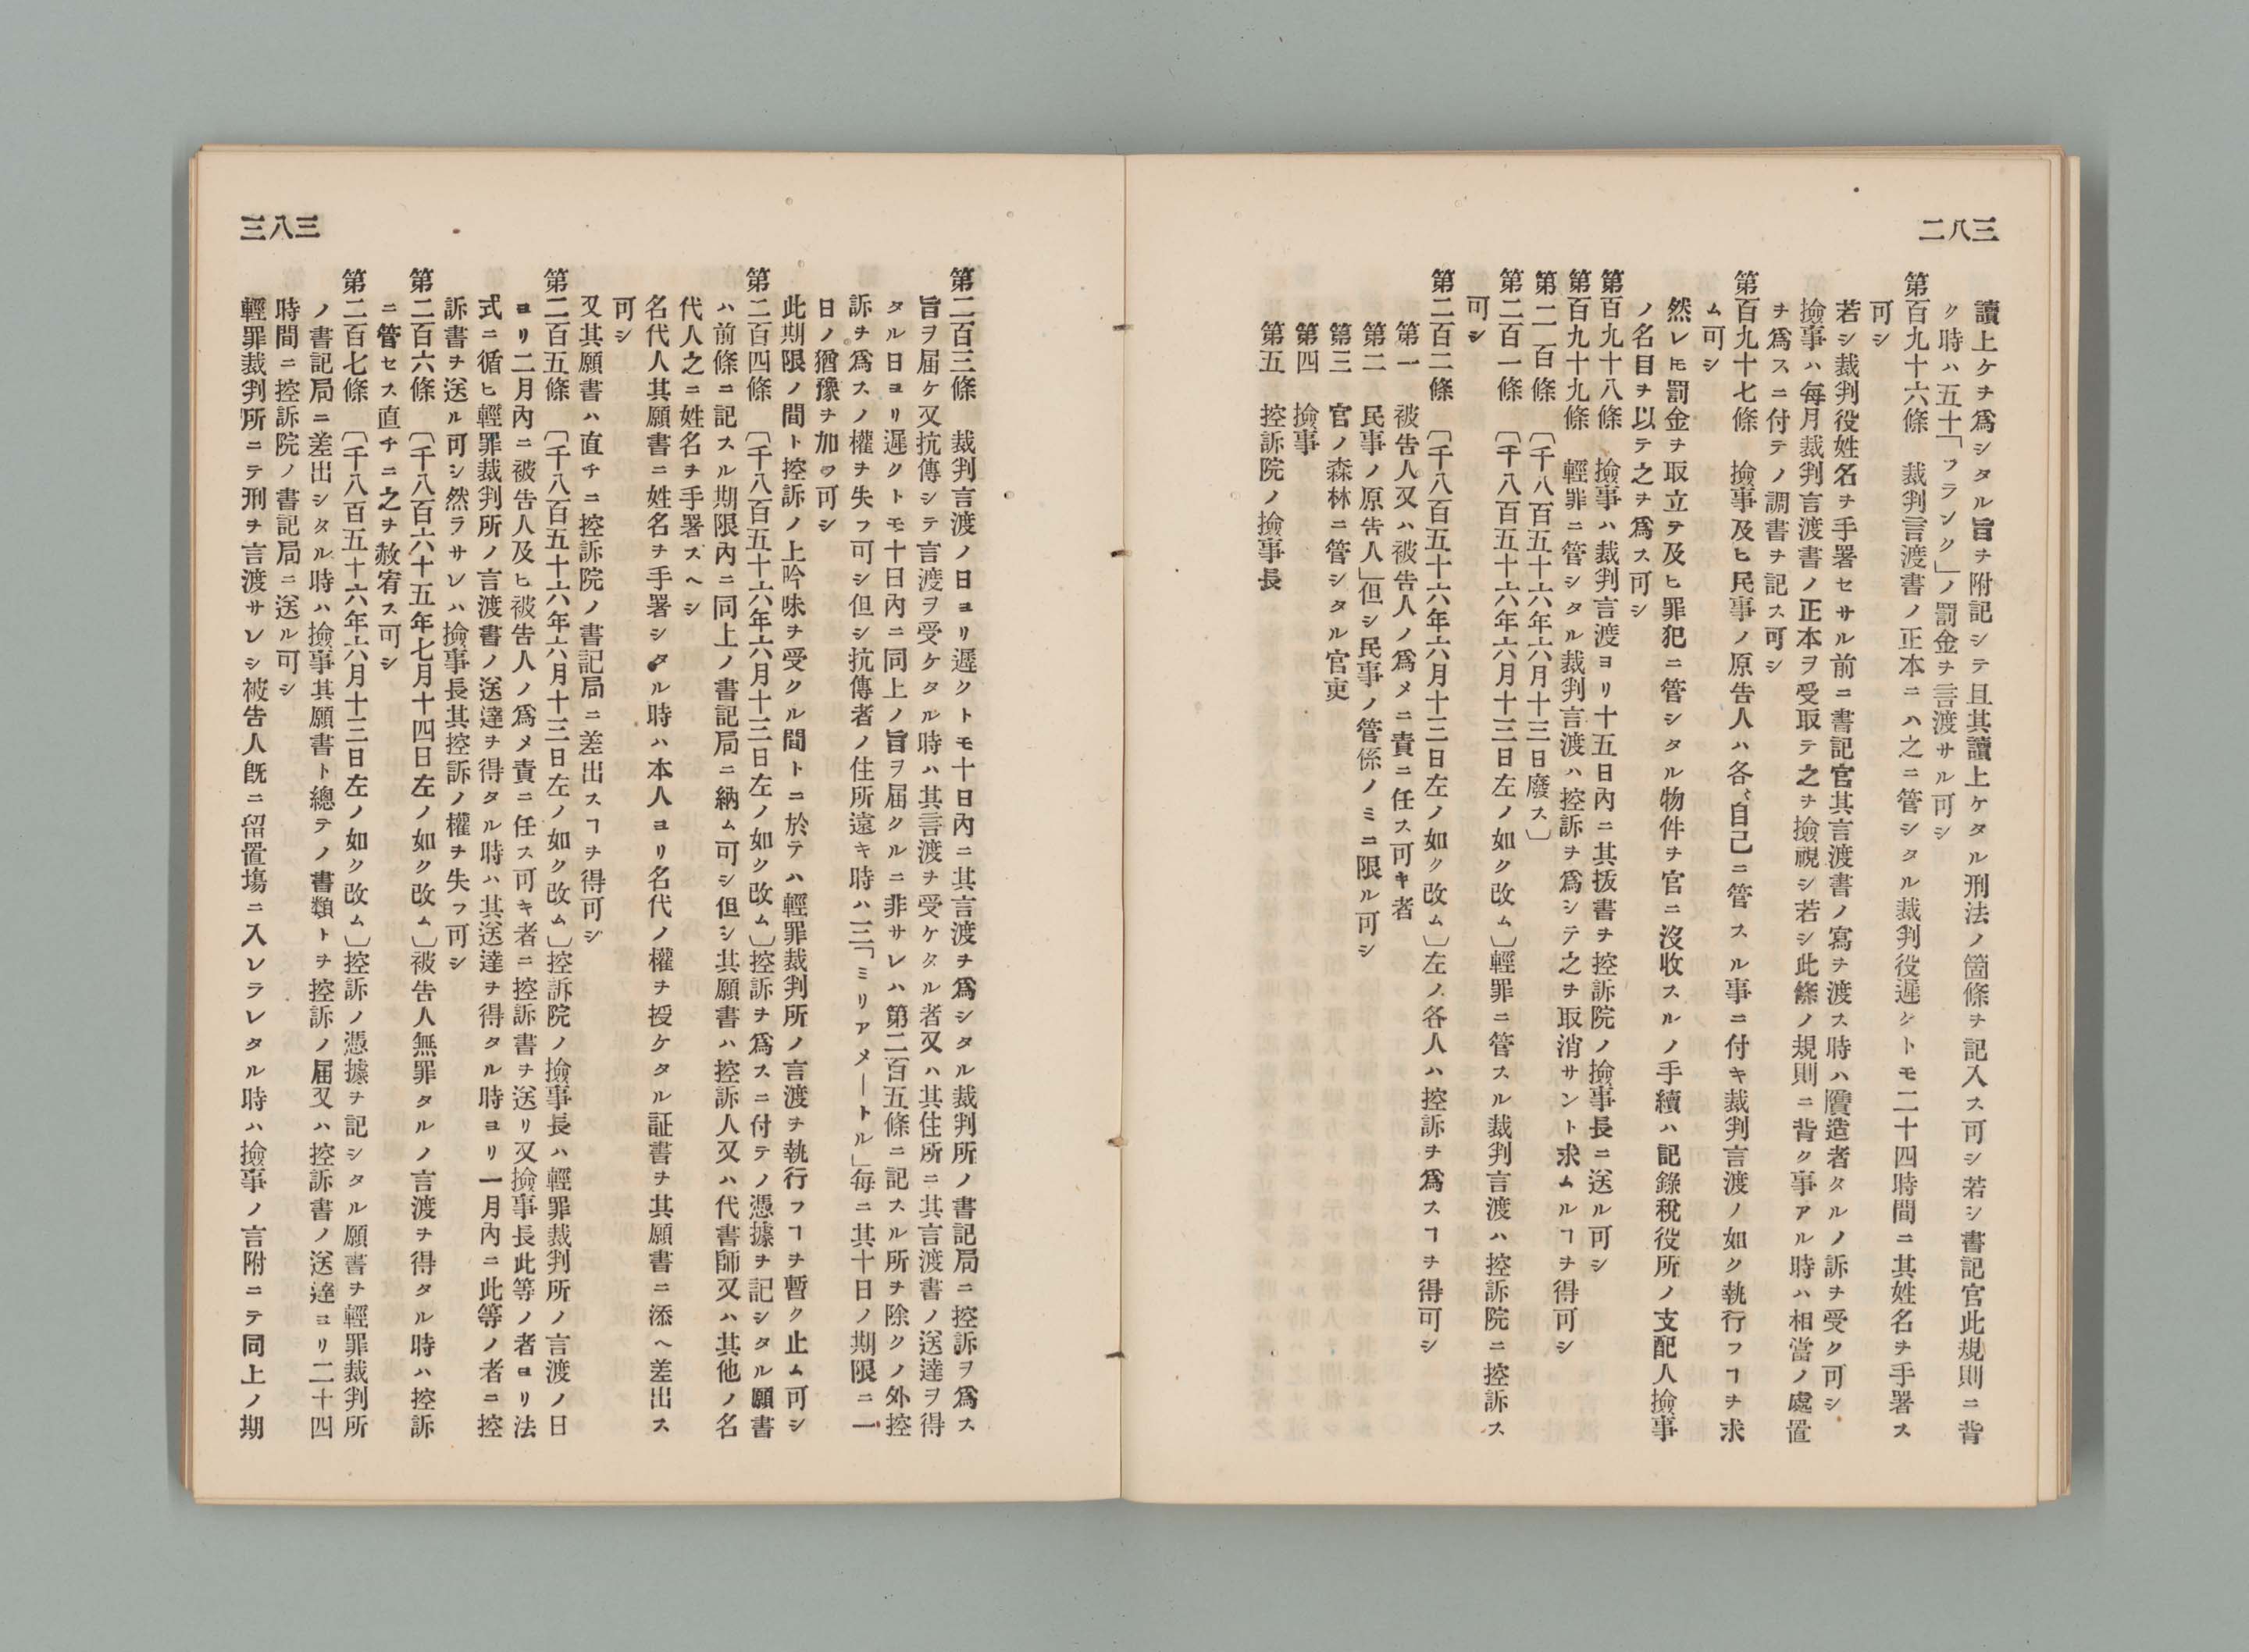 三八二
讀上ケヲ爲シタル旨ヲ附記シテ且其讀上ケタル刑法ノ箇條ヲ記入ス可シ若シ書記官此規則ニ背
ク時ハ五十「フランク」ノ罰金ヲ言渡サル可シ
第百九十六條　裁判言渡書ノ正本ニハ之ニ管シタル裁判役遲クトモ二十四時間ニ其姓名ヲ手署ス
可シ
若シ裁判役姓名ヲ手署セサル前ニ書記官其言渡書ノ寫ヲ渡ス時ハ贋造者タルノ訴ヲ受ク可シ
撿事ハ每月裁判言渡書ノ正本ヲ受取テ之ヲ撿視シ若シ此條ノ規則ニ背ク事アル時ハ相當ノ處置
ヲ爲スニ付テノ調書ヲ記ス可シ
第百九十七條　撿事及ヒ民事ノ原告人ハ各〻自己ニ管スル事ニ付キ裁判言渡ノ如ク執行フヿヲ求
ム可シ
然レ𪜈罰金ヲ取立テ及ヒ罪犯ニ管シタル物件ヲ官ニ沒收スルノ手續ハ記錄稅役所ノ支配人撿事
ノ名目ヲ以テ之ヲ爲ス可シ
第百九十八條　撿事ハ裁判言渡ヨリ十五日內ニ其拔書ヲ控訴院ノ撿事長ニ送ル可シ
第百九十九條　輕罪ニ管シタル裁判言渡ハ控訴ヲ爲シテ之ヲ取消サント求ムルヿヲ得可シ
第二百條　〔千八百五十六年六月十三日廢ス〕
第二百一條　〔千八百五十六年六月十三日左ノ如ク改ム〕輕罪ニ管スル裁判言渡ハ控訴院ニ控訴ス
可シ
第二百二條　〔千八百五十六年六月十三日左ノ如ク改ム〕左ノ各人ハ控訴ヲ爲スヿヲ得可シ
第一　被告人又ハ被告人ノ爲メニ責ニ任ス可キ者
第二　民事ノ原告人」但シ民事ノ管係ノミニ限ル可シ
第三　官ノ森林ニ管シタル官吏
第四　撿事
第五　控訴院ノ撿事長
三八三
第二百三條　裁判言渡ノ日ヨリ遲クトモ十日內ニ其言渡ヲ爲シタル裁判所ノ書記局ニ控訴ヲ爲ス
旨ヲ届ケ又抗傳シテ言渡ヲ受ケタル時ハ其言渡ヲ受ケタル者又ハ其住所ニ其言渡書ノ送達ヲ得
タル日ヨリ遲クトモ十日內ニ同上ノ旨ヲ届クルニ非サレハ第二百五條ニ記スル所ヲ除クノ外控
訴ヲ爲スノ權ヲ失フ可シ但シ抗傳者ノ住所遠キ時ハ三「ミリアメートル」每ニ其十日ノ期限ニ一
日ノ猶豫ヲ加フ可シ
此期限ノ間ト控訴ノ上吟味ヲ受クル間トニ於テハ輕罪裁判所ノ言渡ヲ執行フヿヲ暫ク止ム可シ
第二百四條　〔千八百五十六年六月十三日左ノ如ク改ム〕控訴ヲ爲スニ付テノ憑據ヲ記シタル願書
ハ前條ニ記スル期限內ニ同上ノ書記局ニ納ム可シ但シ其願書ハ控訴人又ハ代書師又ハ其他ノ名
代人之ニ姓名ヲ手署スヘシ
名代人其願書ニ姓名ヲ手署シタル時ハ本人ヨリ名代ノ權ヲ授ケタル証書ヲ其願書ニ添ヘ差出ス
可シ
又其願書ハ直チニ控訴院ノ書記局ニ差出スヿヲ得可シ
第二百五條　〔千八百五十六年六月十三日左ノ如ク改ム〕控訴院ノ撿事長ハ輕罪裁判所ノ言渡ノ日
ヨリ二月內ニ被告人及ヒ被告人ノ爲メ責ニ任ス可キ者ニ控訴書ヲ送リ又撿事長此等ノ者ヨリ法
式ニ循ヒ輕罪裁判所ノ言渡書ノ送達ヲ得タル時ハ其送達ヲ得タル時ヨリ一月內ニ此等ノ者ニ控
訴書ヲ送ル可シ然ラサレハ撿事長其控訴ノ權ヲ失フ可シ
第二百六條　〔千八百六十五年七月十四日左ノ如ク改ム〕被告人無罪タルノ言渡ヲ得タル時ハ控訴
ニ管セス直チニ之ヲ赦宥ス可シ
第二百七條　〔千八百五十六年六月十三日左ノ如ク改ム〕控訴ノ憑據ヲ記シタル願書ヲ輕罪裁判所
ノ書記局ニ差出シタル時ハ撿事其願書ト總テノ書類トヲ控訴ノ届又ハ控訴書ノ送達ヨリ二十四
時間ニ控訴院ノ書記局ニ送ル可シ
輕罪裁判所ニテ刑ヲ言渡サレシ被告人旣ニ留置塲ニ入レラレタル時ハ撿事ノ言附ニテ同上ノ期